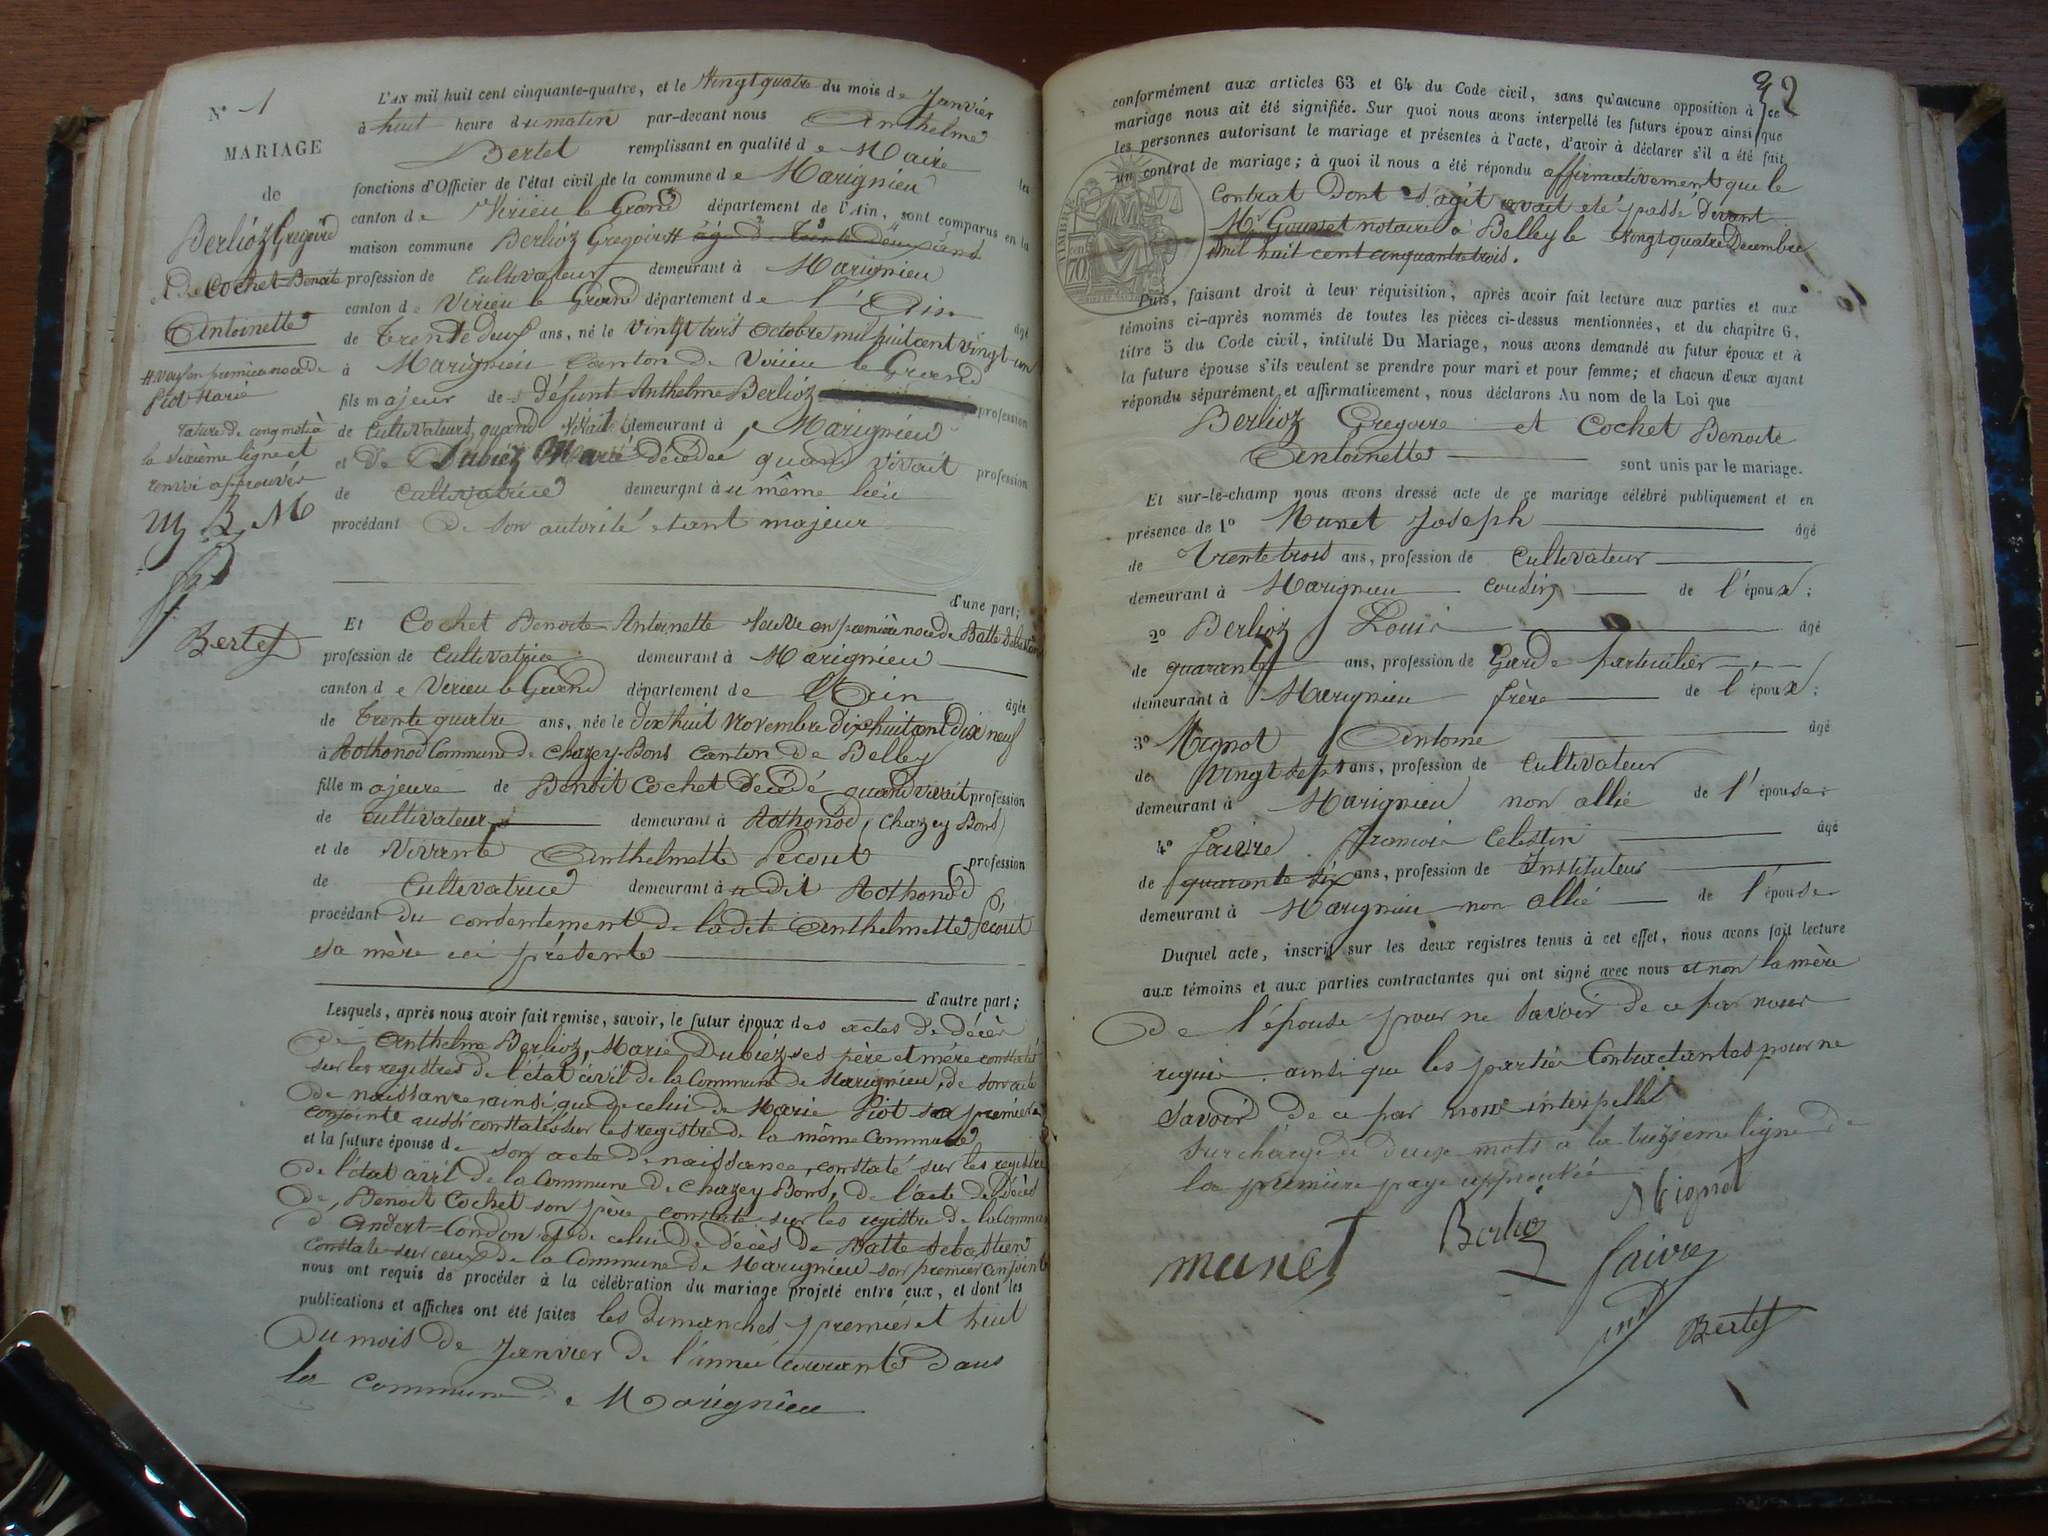 N° 1
MARIAGE
de
Berlioz Gregoire
et de Cochet Benoite
Antoinette
# veuf en premiere noce de
Piot Marie
rature de cinq mots à
la sixième ligne et
renvoi approuvés
B. M
Bertet
L'AN mil huit cent cinquante-quatre, et le vingt quatre du mois de Janvier
à huit heure du matin par-devant nous Anthelme
Bertet remplissant en qualité de Maire
fonctions d'Officier de l'état civil de la commune de Marignieu les
canton de Virieu le Grand département de l'Ain, sont comparus en la
maison commune Berlioz Gregoire # âgé de Trente Deux ans
profession de Cultivateur demeurant à Marignieu
canton de Virieu le Grand département de l'Ain âgé
de Trente deux ans, né le vingt trois octobre mil huit cent vingt un
à Marignieu Canton de Virieu le Grand
fils majeur de Défunt Anthelme Berlioz profession
de Cultivateurs, quand vivait demeurant à Marignieu
et de Dubiez Marie décédée quand vivait profession
de Cultivatrice demeurant au même lieu
procédant De son autorité etant majeur
d'une part;
Et Cochet Benoite-Antoinette Veuve en première noce de Batte Sebastien
profession de Cultivatrice demeurant à Marignieu
canton de Virieu le Grand département de l'Ain âgée
de Trente quatre ans, née le dix huit Novembre dix huit cent dix neuf
à Rothonod Commune de Chazey-Bons Canton de Belley
fille majeure de Benoit Cochet Décédé quand vivait profession
de cultivateur demeurant à Rothonod, Chazey Bons
et de Vivante Anthelmette Pecout profession
de Cultivatrice demeurant au dit Rothonod
procédant du consentement de ladite Anthelmette Pécout
sa mère ici présente
d'autre part;
Lesquels, après nous avoir fait remise, savoir, le futur époux des actes de décès
de Anthelme Berlioz, Marie Dubiez ses père et mère constatés
sur les registres de l'état civil de la Commune de Marignieu, de son acte
de naissance, ainsi que de celui de Marie Piot sa première
conjointe aussi constatés sur les registre de la même Commune
et la future épouse de son acte de naissance, constaté sur les registre
de l'état civil de la Commune de Chazey Bons, de l'acte de décès
de, Benoit Cochet son père constaté sur les registre de la Commune
d'Andert-Condon et de celui de décès de Batte Sebastien
constaté sur ceux de la Commune de Marignieu son premier conjoint
nous ont requis de procéder à la célébration du mariage projeté entre eux, et dont les
publications et affiches ont été faites les Dimanches premier et huit
du mois de Janvier de l'année courante dans
la commune de Marignieu
2
conformément aux articles 63 et 64 du Code civil, sans qu'aucune opposition à ce
mariage nous ait été signifiée. Sur quoi nous avons interpellé les futurs époux ainsi que
les personnes autorisant le mariage et présentes à l'acte, d'avoir à déclarer s'il a été fait
un contrat de mariage; à quoi il nous a été répondu affirmativement que le
Contrat Dont s'agit avait été passé devant
Mr Gousset notaire à Belley le vingt quatre Decembre
mil huit cent cinquante trois.
TIMBRE
70
Puis, faisant droit à leur réquisition, après avoir fait lecture aux parties et aux
témoins ci-après nommés de toutes les pièces ci-dessus mentionnées, et du chapitre 6,
titre 5 du Code civil, intitulé Du Mariage, nous avons demandé au futur époux et à
la future épouse s'ils veulent se prendre pour mari et pour femme; et chacun d'eux ayant
répondu séparément et affirmativement, nous déclarons Au nom de la Loi que
Berlioz Gregoire et Cochet Benoite
Antoinette sont unis par le mariage.
Et sur-le-champ nous avons dressé acte de ce mariage célébré publiquement et en
présence de 1° Munet Joseph âgé
de Trente trois ans, profession de Cultivateur
demeurant à Marignieu cousin de l'époux;
2° Berlioz Louis âgé
de quarante ans, profession de Garde particulier
demeurant à Marignieu frère de l'époux;
3° Mignot Antoine âgé
de Vingt sept ans, profession de Cultivateur
demeurant à Marignieu non allié de l'épouse;
4° Faivre François Celestin âgé
de quarante six ans, profession de Instituteur
demeurant à Marignieu non allié de l'épouse
Duquel acte, inscrit sur les deux registres tenus à cet effet, nous avons fait lecture
aux témoins et aux parties contractantes qui ont signé avec nous et non la mère
de l'épouse pour ne savoir de ce par nous
requis, ainsi que les parties Contractantes pour ne
Savoir de ce par nous interpellé
Surcharge de deux mots à la treizieme ligne de
la première page approuvée
Mignot
Berlioz
munet
faivre
Bertet